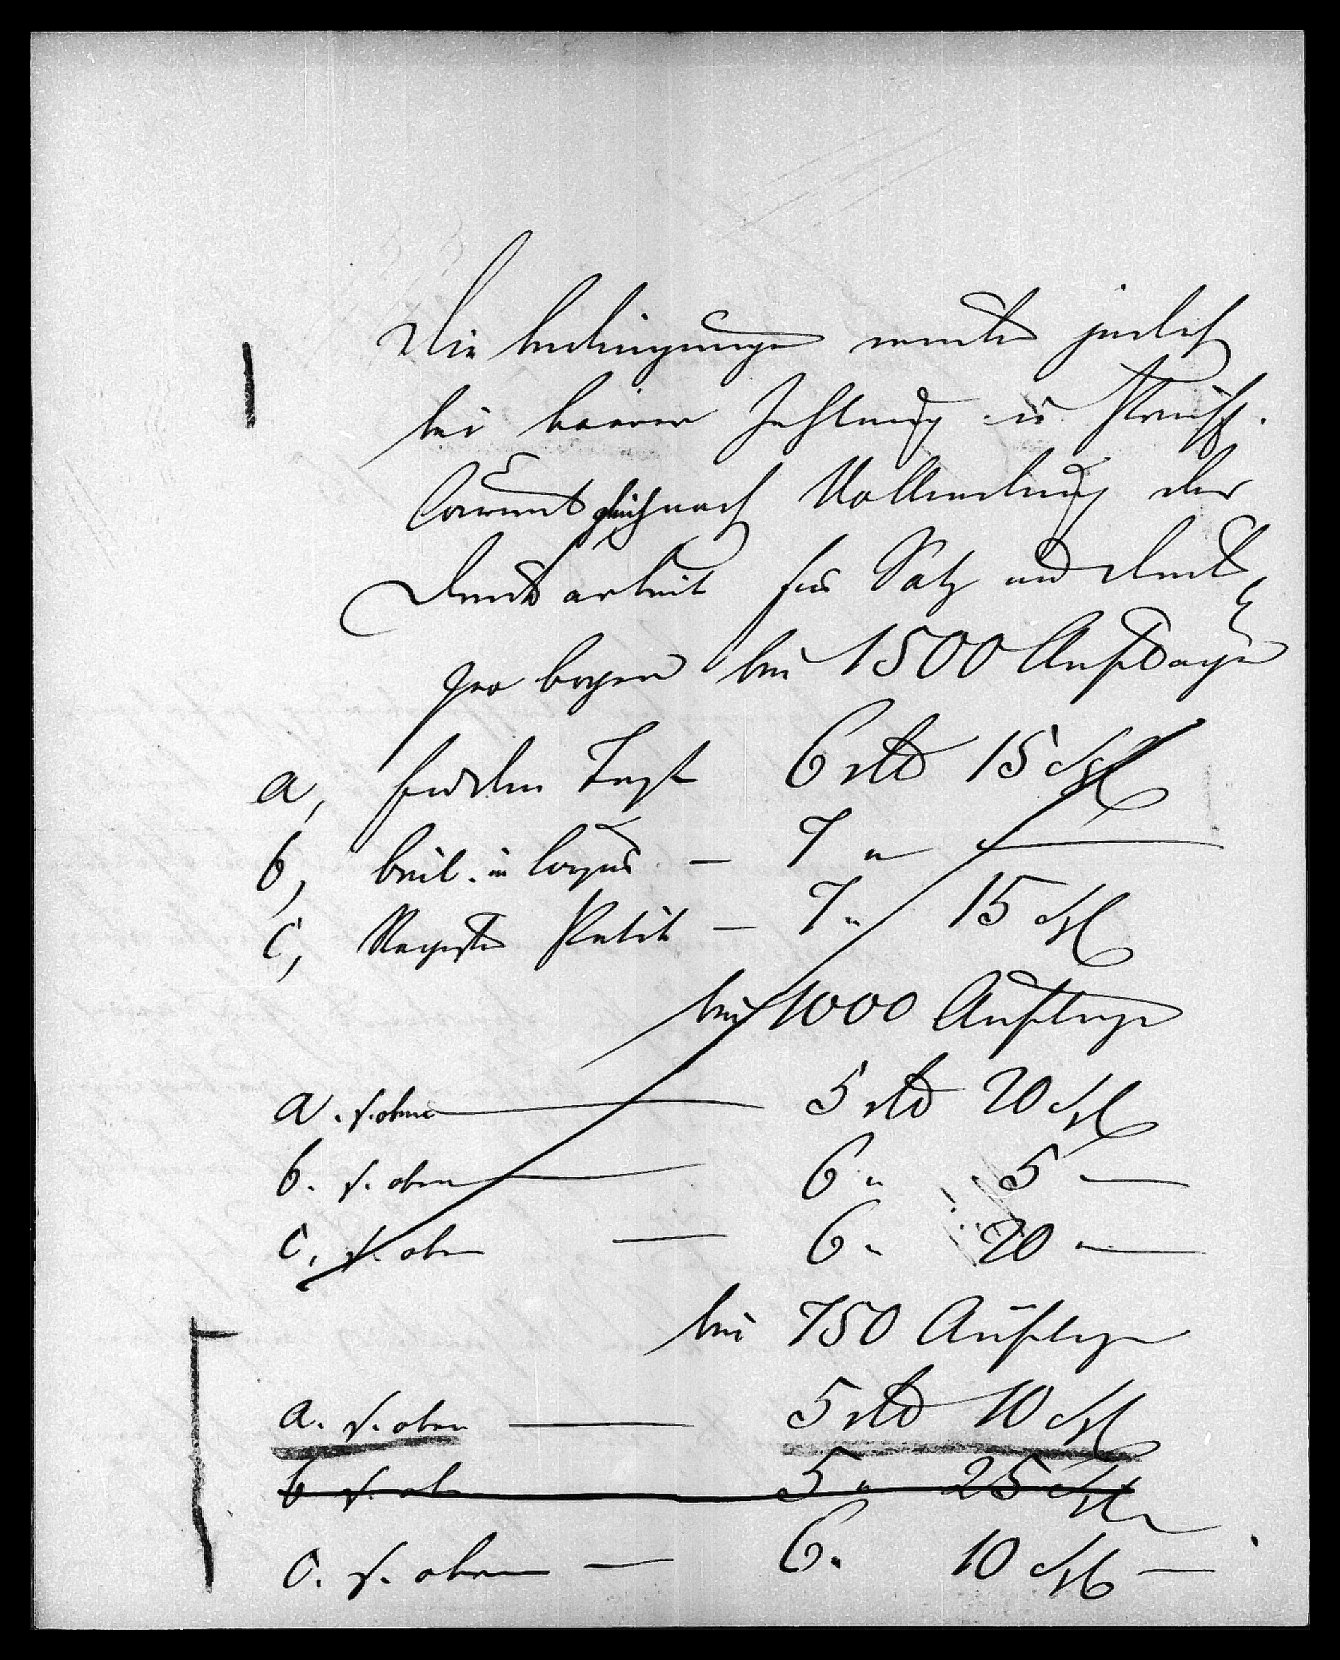 Die Bedingungen werden jedoch
bei baarer Zahlung in Preuß.
Courant gleich nach Vollendung der
Druckarbeit für Satz und Druck
pro Bogen bei 1500 Auflage
a, für den Text 6 rtl 15 Sgl
b, Beil. in Corpus – 7 " —
c, Register Petit – 7 " 15 Sgl
bei 1000 Auflage
a. s. oben — 5 rtl 20 Sgl
b. s. oben — 6 " 5 —
c. s. oben — 6 " 20 —
bei 750 Auflage
a. s. oben — 5 rtl 10 Sgl
b s. ob — 5 " 25 Sgl
c. s. oben — 6 " 10 Sgl —